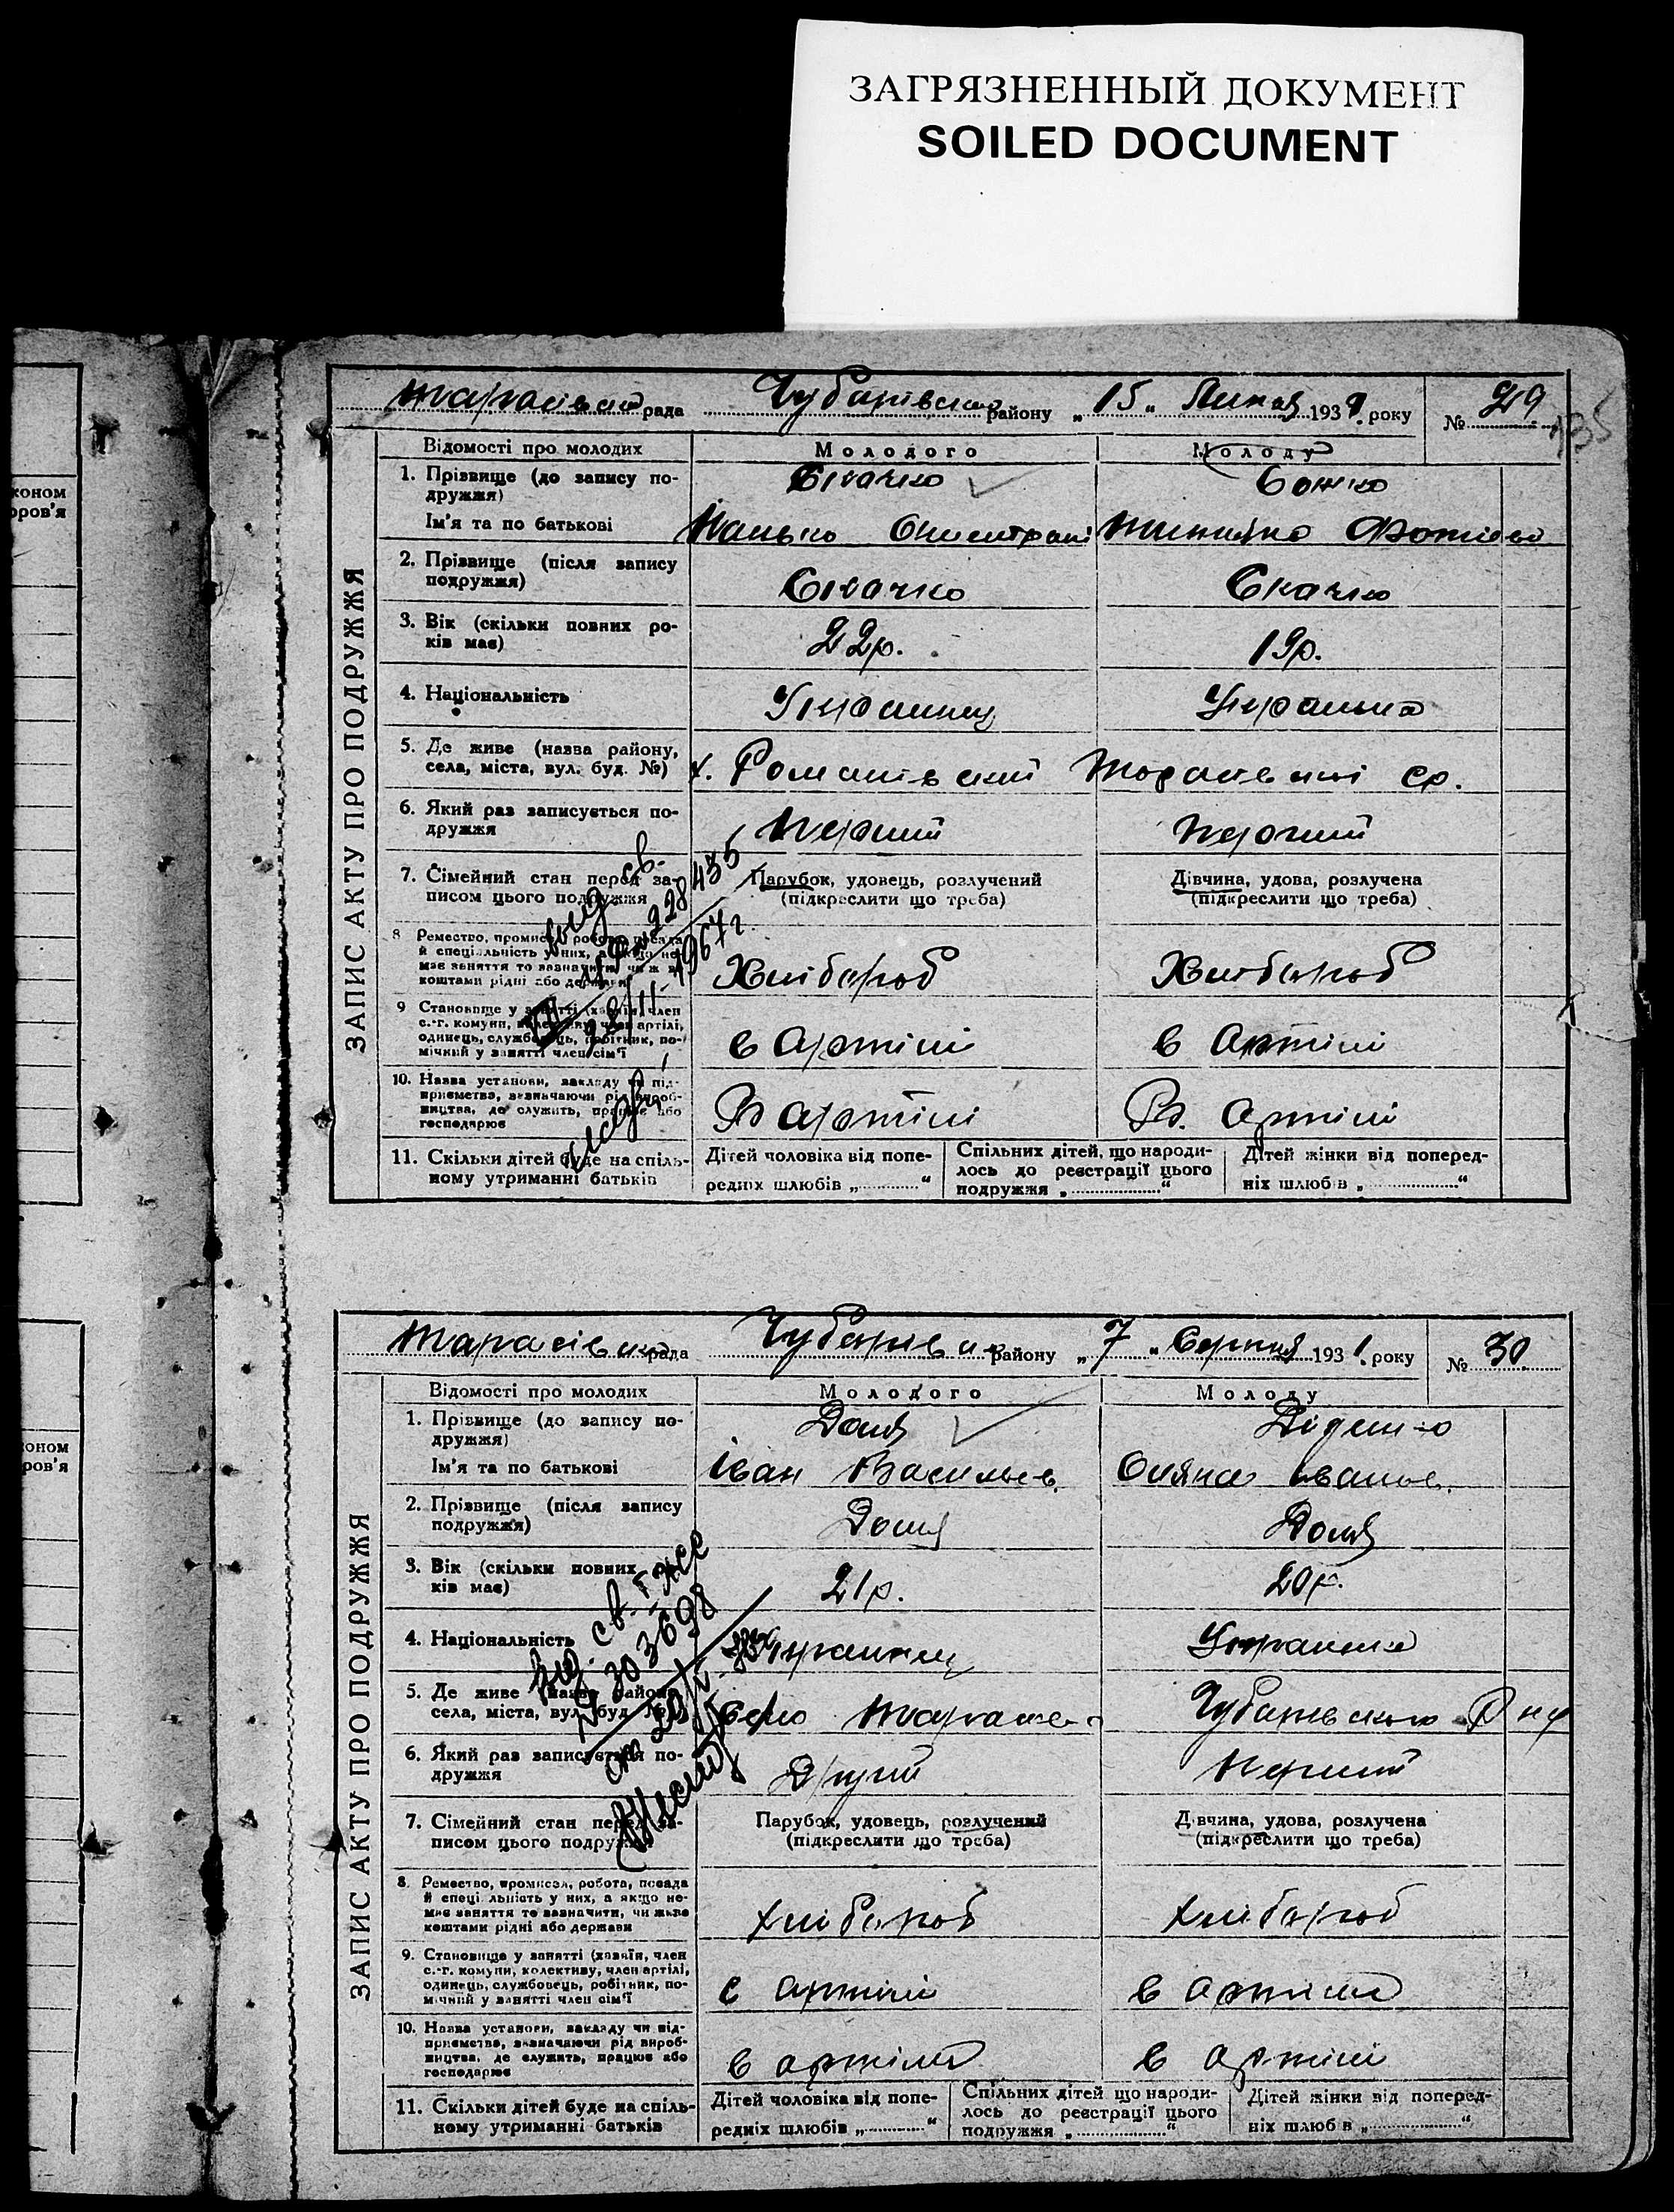 ЗАГРЯЗНЕННЫЙ ДОКУМЕНТ
SOILED DOCUMENT
коном
оров'я
коном
ров'я
ЗАПИС АКТУ ПРО ПОДРУЖЖЯ
рада Чубарівсько району „15„ Липня 193 року № 29
Відомості про молодих Молодого Молоду
1. Прізвище (до запису по-
дружжя) Скачко Божко
Ім'я та по батькові
2. Прізвище (після запису
подружжя) Скачко Скачко
3. Вік (скільки повних ро-
ків має) 22р. 19р.
4. Національність Українець Українка
5. Де живе (назва району,
села, міста, вул. буд. №) х. Романівский ср.
6. Який раз записується по-
дружжя Перший Перший
7. Сімейний стан перед за-
писом цього подружжя Парубок, удовець, розлучений
(підкреслити що треба) Дівчина, удова, розлучена
(підкреслити що треба)
8 Ремество, промисел, робота, посада
й спеціальність у них, а якщо не
має заняття то зазначити, чи ж
коштами рідні або держави Хлібороб Хлібороб
9 Становище у занятті (хазяїн, член
с.-г. комуни, колективу, член артілі,
одинець, службовець, робітник, по-
мічний у занятті член сім'ї в Артілі в Артілі
10. Назва установи, закладу чи під-
приємства, зазначаючи рід вироб-
ництва, де служить, працює або
господарює В артілі В. артілі
11. Скільки дітей буде на спіль-
ному утриманні батьків Дітей чоловіка від попе-
редніх шлюбів „ “ Спільних дітей, що народи-
лось до реєстрації цього
подружжя „ “ Дітей жінки від поперед-
ніх шлюбів „ “
ЗАПИС АКТУ ПРО ПОДРУЖЖЯ
рада району „7„ Серпня 1931 року № 30
Відомості про молодих Молодого Молоду
1. Прізвище (до запису по-
дружжя) Доля Діденко
Ім'я та по батькові Іван Васильев. Оляна Іванов.
2. Прізвище (після запису
подружжя) Доля Доля
3. Вік (скільки повних
ків має) 21р. 20р.
4. Національність Українець Українка
5. Де живе (назва району
села, міста, вул. буд. №) село
6. Який раз записується по-
дружжя Другий Перший
7. Сімейний стан перед за-
писом цього подружжя Парубок, удовець, розлучений
(підкреслити що треба) Дівчина, удова, розлучена
(підкреслити що треба)
8. Ремество, промисел, робота, посада
й спеціальність у них, а якщо не-
має заняття то зазначити, чи живе
коштами рідні або держави хлібороб хлібороб
9. Становище у занятті (хазяїн, член
с.-г. комуни, колективу, член артілі,
одинець, службовець, робітник, по-
мічний у занятті член сім'ї в артілі в артілі
10. Назва установи, закладу чи під-
приємства, зазначаючи рід вироб-
ництва, де служить, працює або
господарює в артілі в артілі
11. Скільки дітей буде на спіль-
ному утриманні батьків Дітей чоловіка від попе-
редніх шлюбів „ “ Спільних дітей що народи-
лось до реєстрації цього
подружжя „ “ Дітей жінки від поперед-
ніх шлюбів „ “